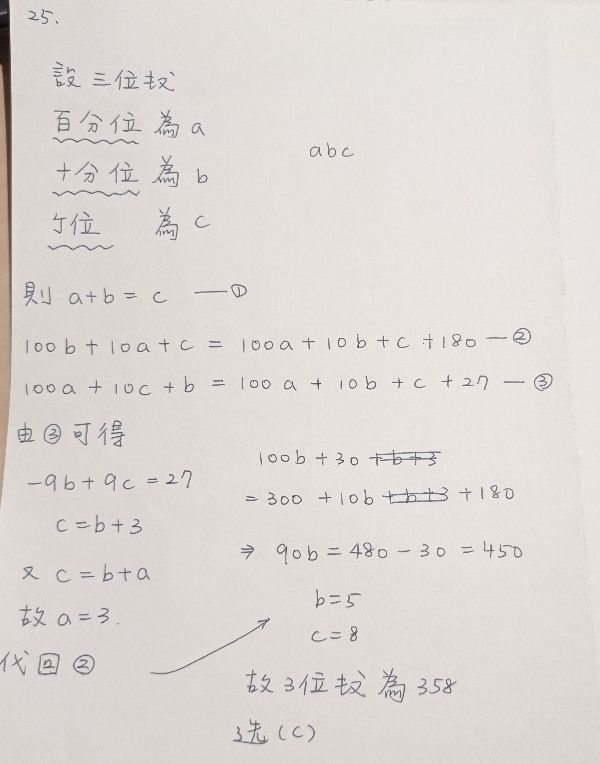 25.
設三位数
百分位 為 a
十分位 為 b
abc
個位 為 c
則 a+b = c —①
100b + 10a + c = 100a + 10b + c + 180 —②
100a + 10c + b = 100a + 10b + c + 27 —③
由③可得
-9b + 9c = 27
c = b+3
又 c = b+a
故 a = 3.
代回②
100b + 30 +b+3
= 300 + 10b +b+3 + 180
⇒ 90b = 480 - 30 = 450
b = 5
c = 8
故 3位数 為 358
選 (C)